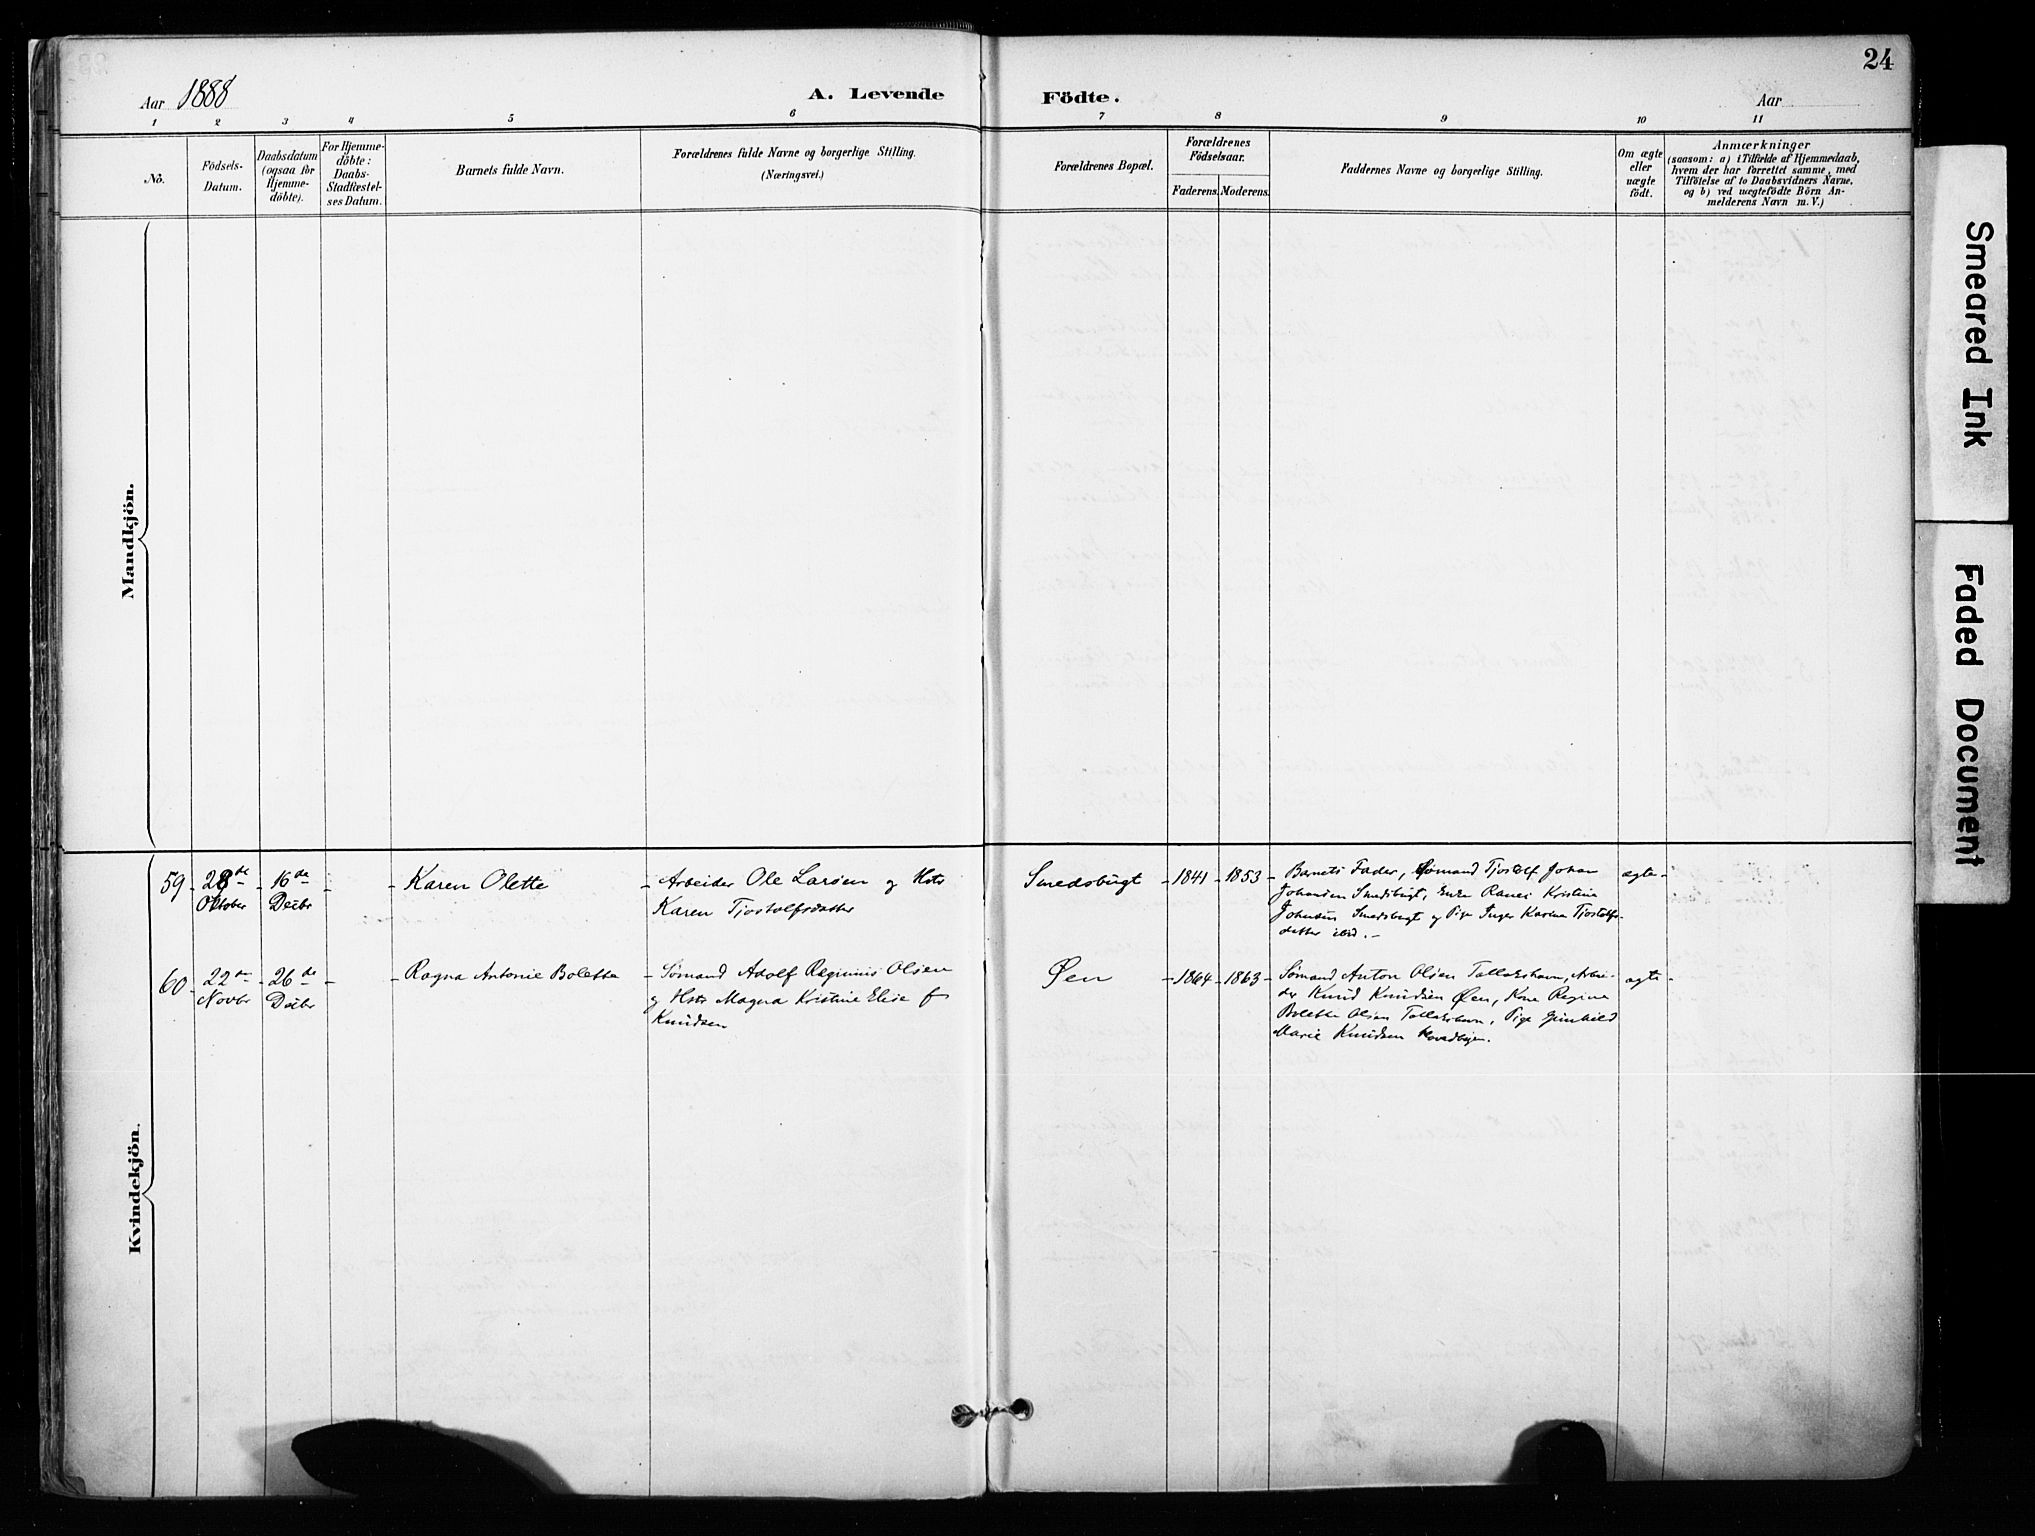 24
Aar 1888
A. Levende Födte.
Aar
1 2 3 4 5 6 7 8 9 10 11
No.
Födsels-
Datum.
Daabsdatum
(ogsaa for
Hjemme-
döbte).
For Hjemme-
döbte:
Daabs-
Stadfæstel-
ses Datum.
Barnets fulde Navn.
Forældrenes fulde Navne og borgerlige Stilling.
(Næringsvei.)
Forældrenes Bopæl.
Forældrenes
Födselsaar.
Faderens. Moderens.
Faddernes Navne og borgerlige Stilling.
Om ægte
eller
uægte
födt.
Anmærkninger
(saasom: a) i Tilfælde af Hjemmedaab,
hvem der har forrettet samme, med
Tilföielse af to Daabsvidners Navne,
og b) ved uægtefödte Börn An-
melderens Navn m. V.)
Mandkjön.
Kvindekjön.
59
28de
Oktober
16de
Decbr
Karen Olette
Arbeider Ole Larsen og Hstr
Karen Tjostolfsdatter
Smedsbugt
1841
1853
Barnets Fader, Sømand Tjostolf Johan
Johansen Smedsbugt, Enke Kristine
Johnsen Smedsbugt og Pige Inger Karine Tjostolfs-
datter ibid.
ægte
60
22de
Novbr
26de
Decbr
Ragna Antonie Bolette
Sømand Adolf Reginius Olsen
og Hstr Magna Kristine Elise f
Knudsen
Øen
1864
1863
Sømand Anton Olsen Tallakshavn, Arbei-
der Knud Knudsen Øen, Kone Regine
Bolette Olsen Tallakshavn, Pige Gunhild
Marie Knudsen
ægte
Smeared Ink
Faded Document